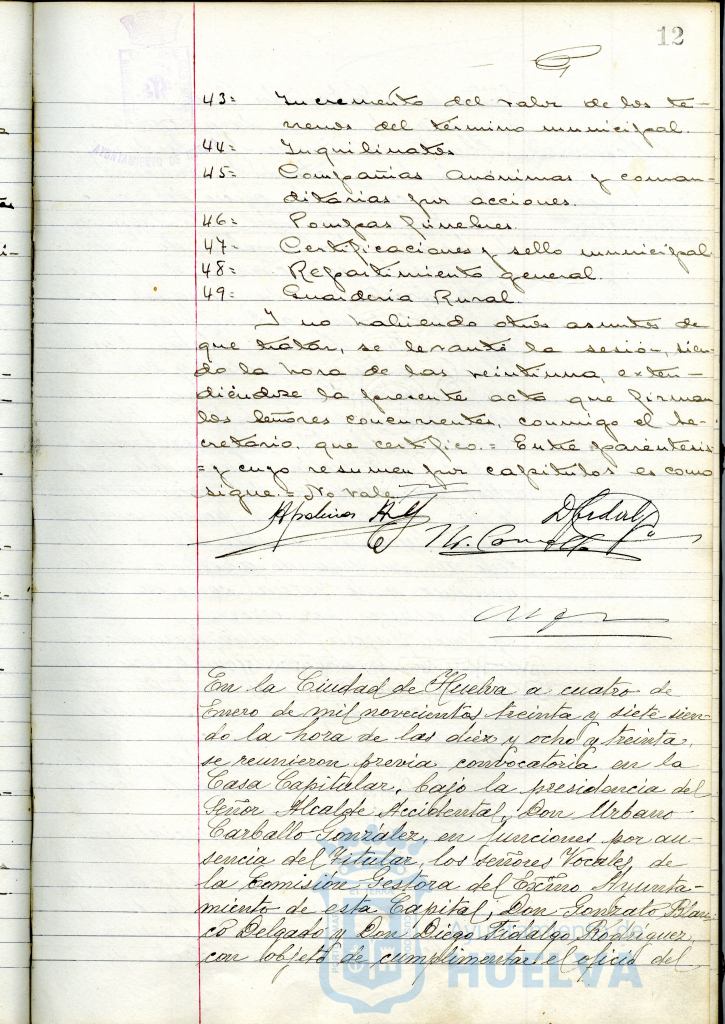 12
43= Incremento del valor de los te-
rrenos del término municipal.
44= Inquilinatos
45= Compañias anónimas y coman-
ditarias por acciones.
46= Pompas fúnebres.
47= Certificaciones y sello municipal
48= Repartimiento general.
49= Guardería Rural.
Y no habiendo otros asuntos de
que tratar, se levantó la sesión, sien-
do la hora de las veintiuna, exten-
diéndose la presente acta que firman
los señores concurrentes, conmigo el Se-
cretario, que certifico.= Entre paréntesis
=y cuyo resumen por capitulos es como
sigue.= No vale
En la Ciudad de Huelva a cuatro de
Enero de mil novecientos treinta y siete sien-
do la hora de las diez y ocho y treinta,
se reunieron previa convocatoria en la
Casa Capitular, bajo la presidencia del
Señor Alcalde Accidental, Don Urbano
Carballo González, en funciones por au-
sencia del Titular, los señores Vocales de
la Comisión Gestora del Excmo Ayunta-
miento de esta Capital, Don Gonzalo Blan-
co Delgado y Don Diego Fidalgo Rodríguez,
con objeto de cumplimentar el oficio del
Ayuntamiento de
HUELVA